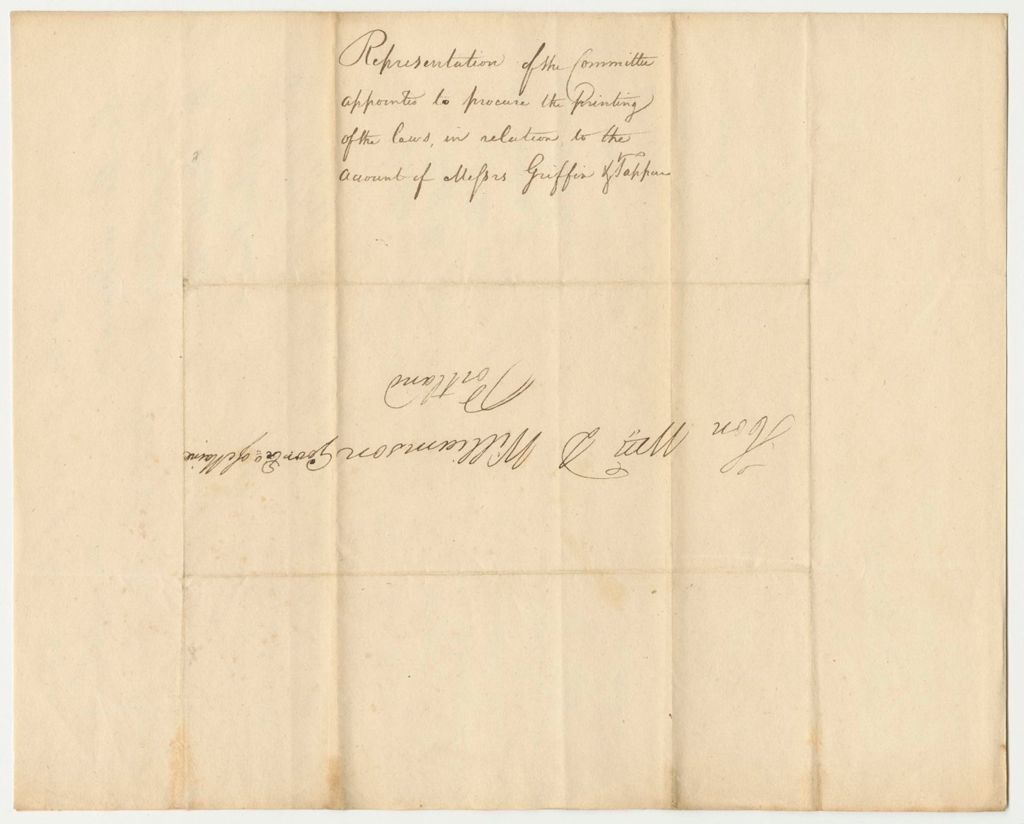 Representation of the Committee
appointed to procure the Printing
of the laws, in relation to the
account of Messrs Griffin & Tappan
Hon Wm D Williamson Govr &c of Maine
Portland